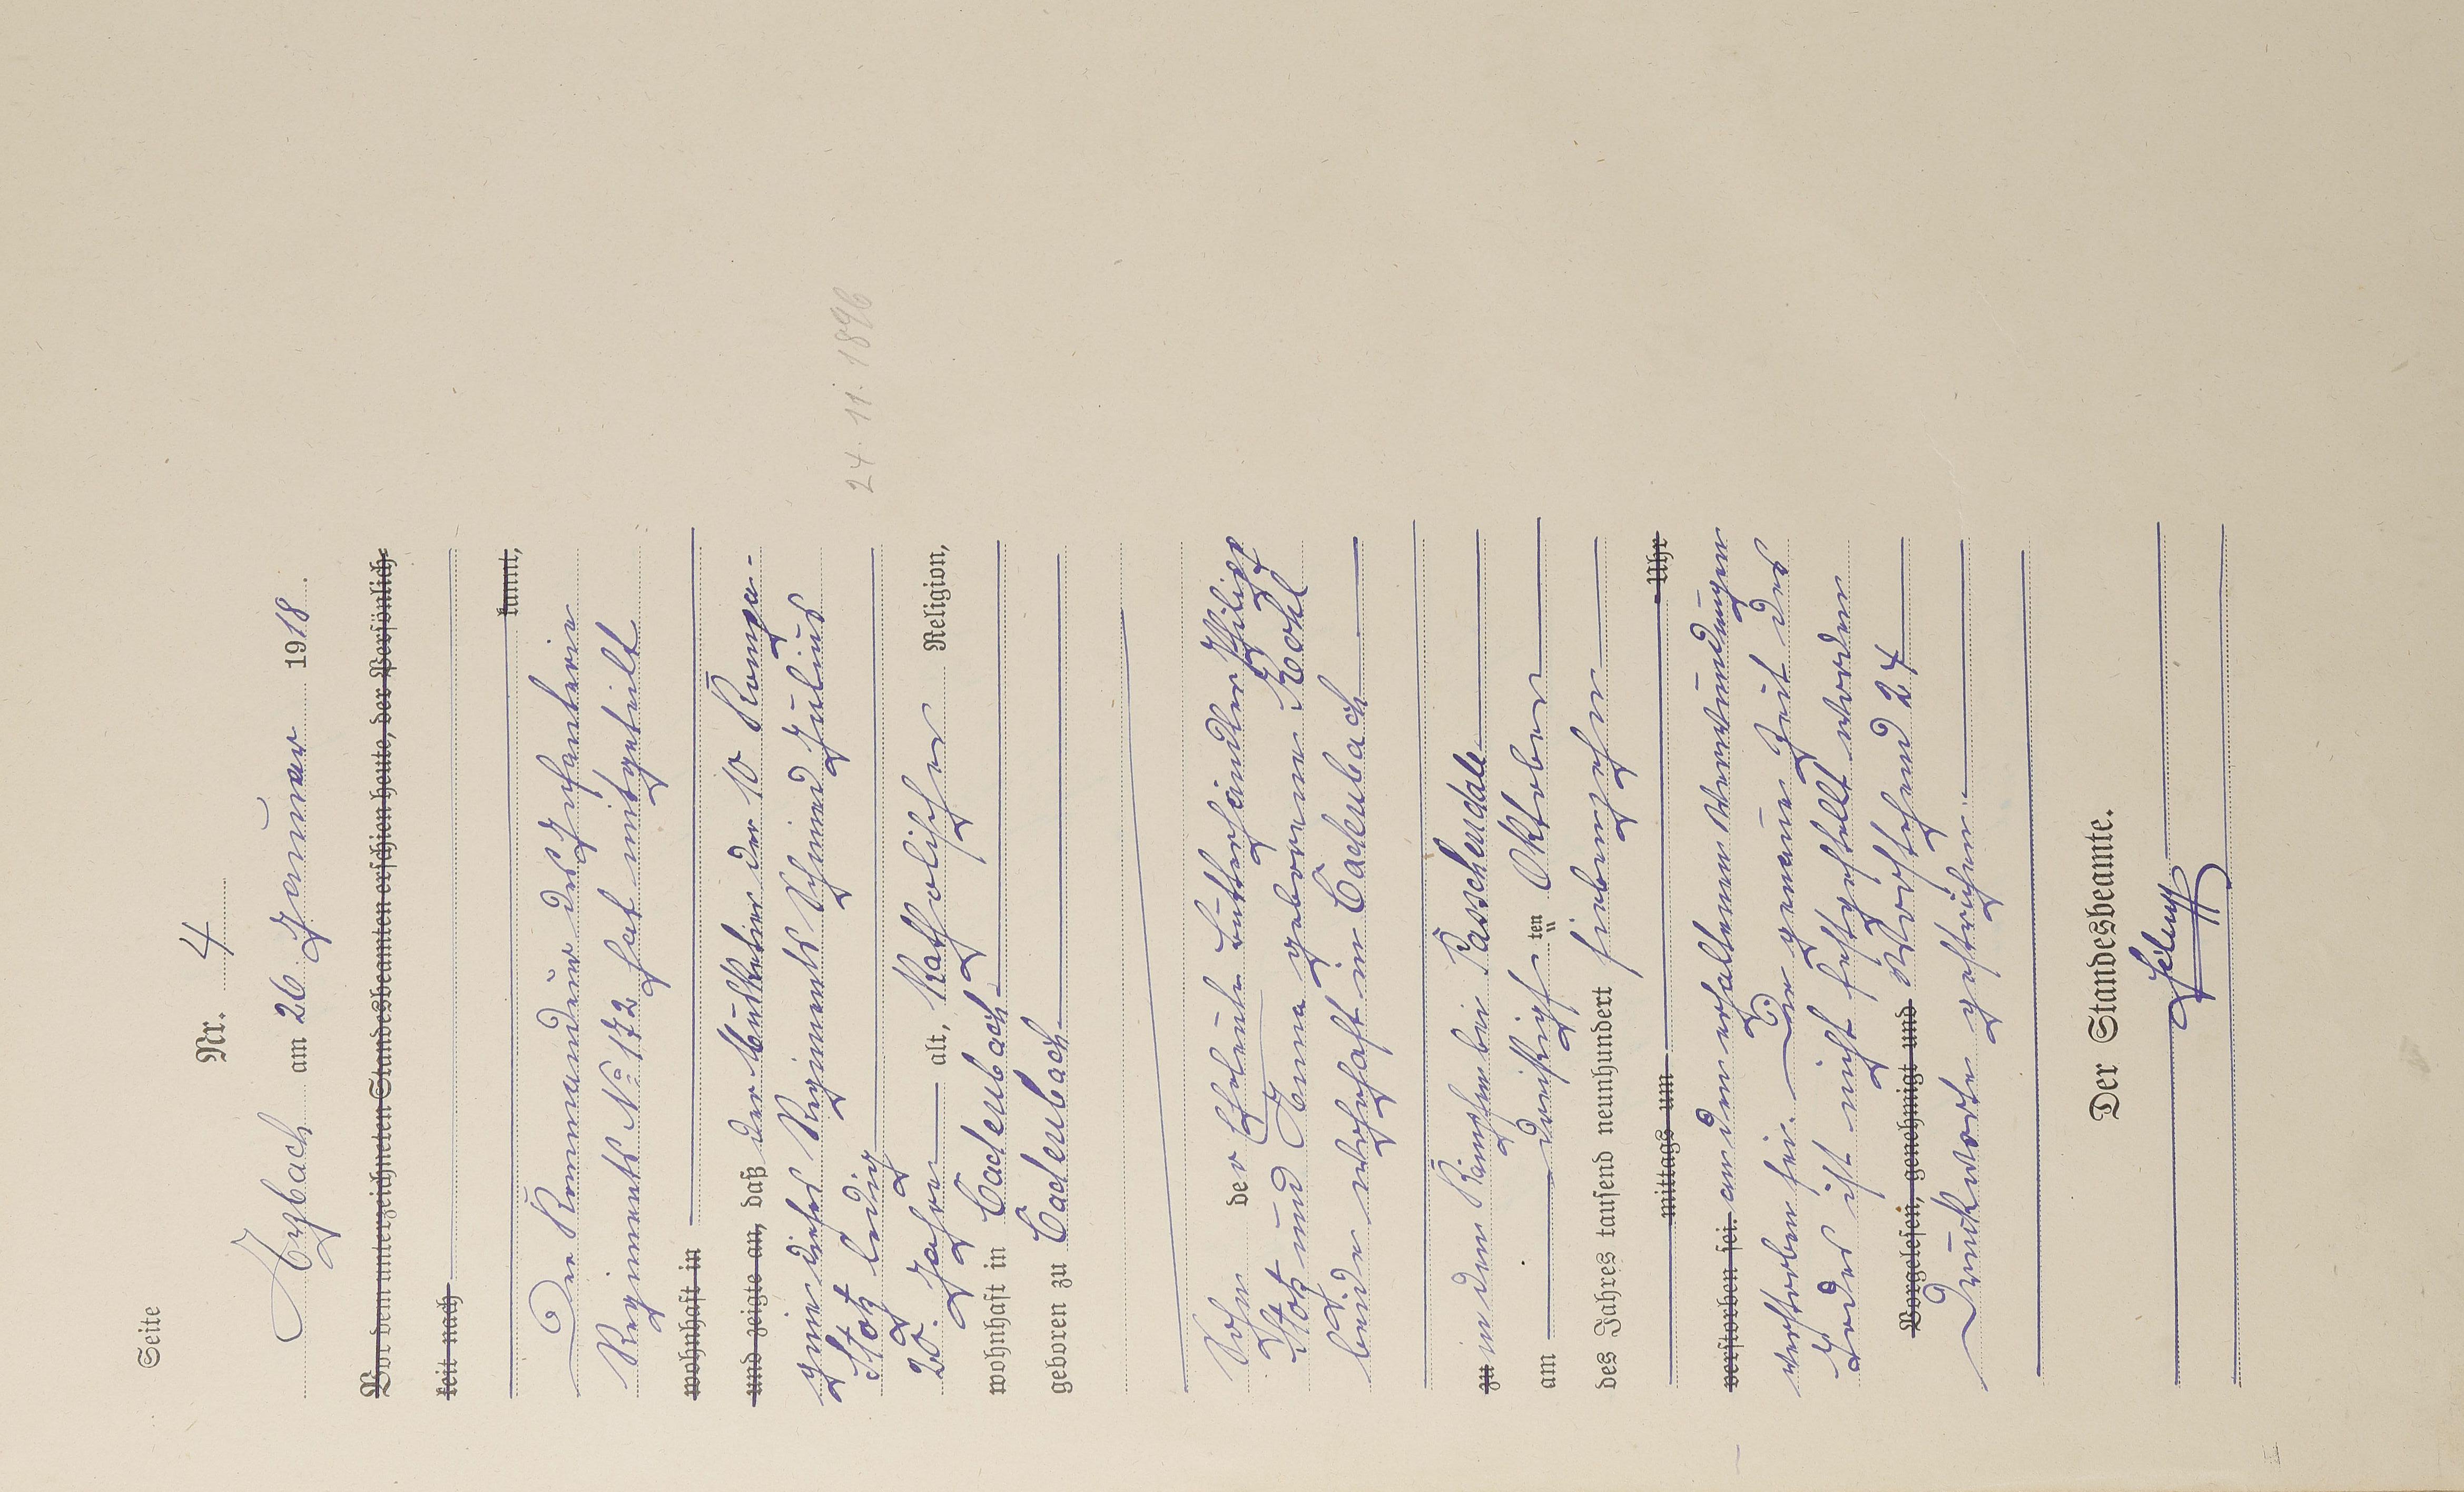 Seite
Nr. 4
Arzbach am 26 Januar 1918.
Vor dem unterzeichneten Standesbeamten erschien heute, der Persönlich-
keit nach
kannt,
Der Kommandeur des Infanterie
Regiments No 172 hat mitgeteilt
wohnhaft in
und zeigte an, daß der Musketier der 10 Kompa-
gnie dieses Regiments Schmied Julius
Stotz ledig
24. 11. 1896
20. Jahre alt, katholischer Religion,
wohnhaft in Cadenbach
geboren zu Cadenbach
Sohn der Eheleute Philipp
Stotz und Anna geborene Kohl
beide wohnhaft in Cadenbach
zu in den Kämpfen bei Passchendale
am dreißigsten Oktober
des Jahres tausend neunhundert siebenzehn
mittags um Uhr
verstorben sei. an den erhaltenen Verwundungen
verstorben sei. Die genaue Zeit des
Todes ist nicht festgestellt worden
Vorgelesen, genehmigt und Vorstehend 24
Druckworte gestrichen.
Der Standesbeamte.